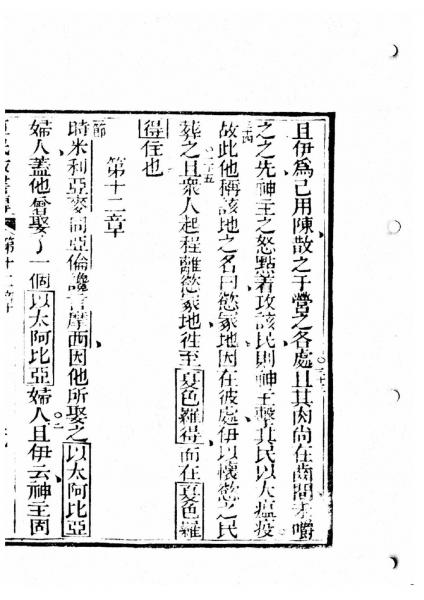 且伊爲己用陳散之于營之各處且其肉尚在齒間未嚼
之之先神王之怒點着攻該民則神王擊其民以大瘟疫
故此他稱該地之名曰慾冢地因在彼處伊以懷慾之民
葬之且衆人起程離慾冢地徃至夏色羅得而在夏色羅
得住也
第十二章
節
時米利亞麥同亞倫讒言摩西因他所娶之以太阿比亞
婦人蓋他曾娶了一個以太阿比亞婦人且伊云神王固